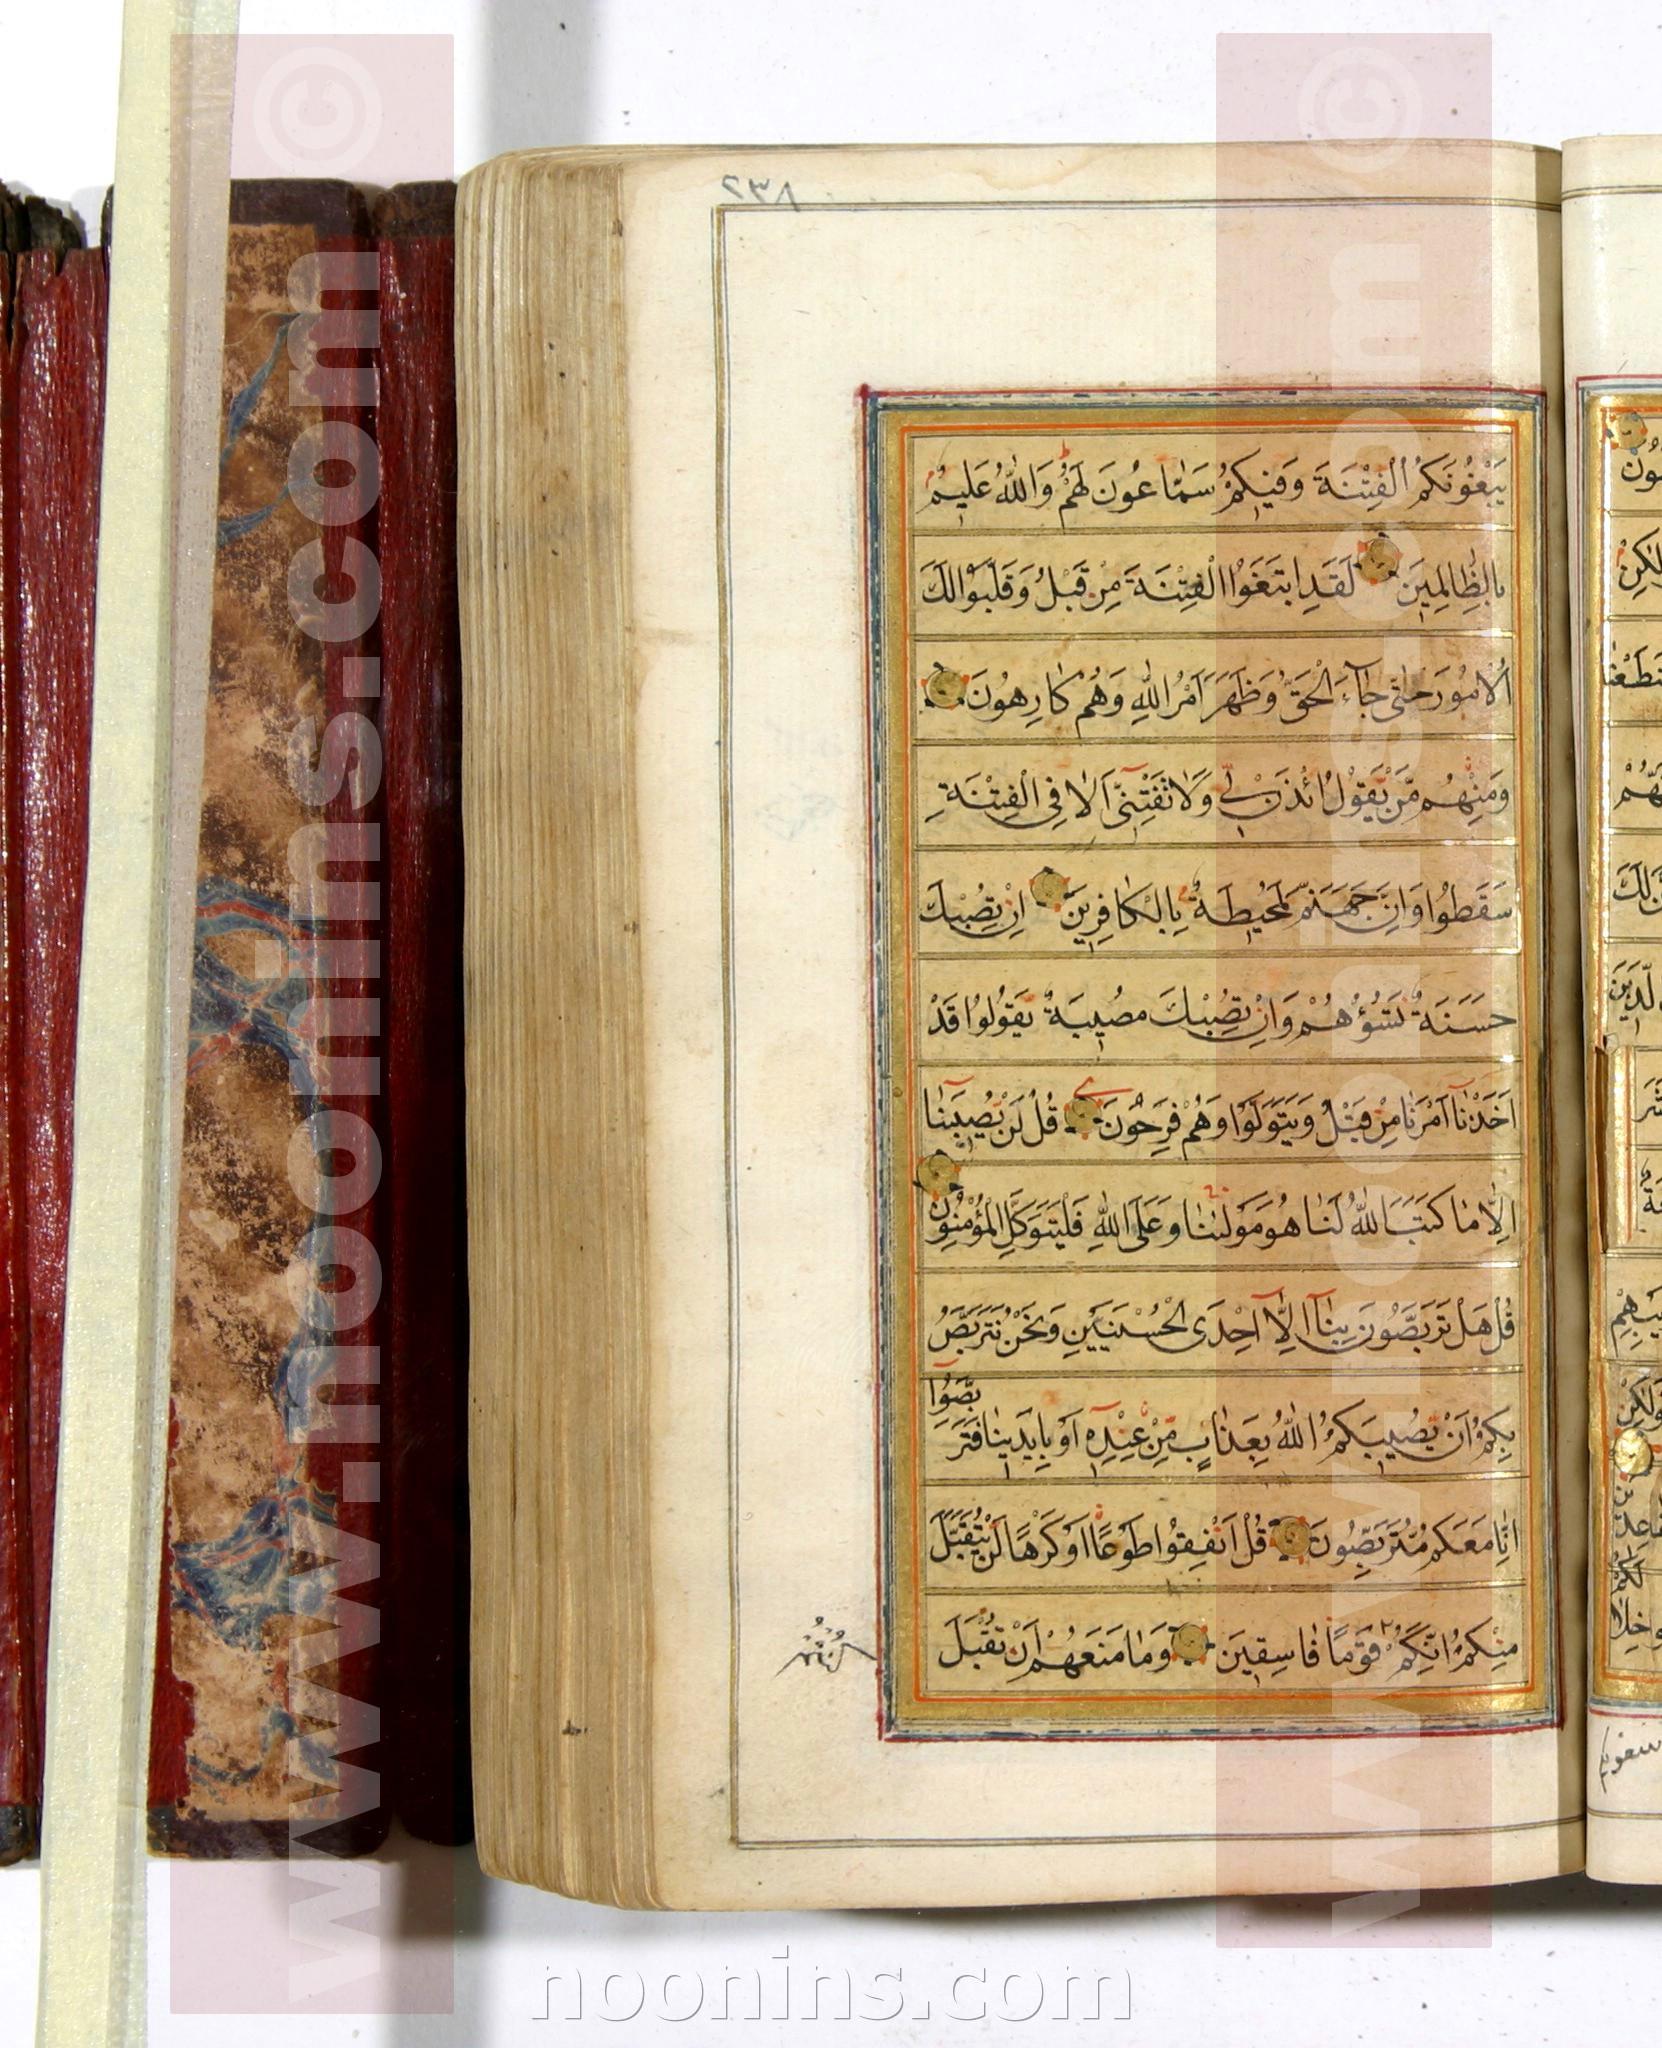 ٢٣٨
يَبْغُونَكُمُ الْفِتْنَةَ وَفِيكُمْ سَمَّاعُونَ لَهُمْ وَاللّٰهُ عَلِيمٌ
بِالظَّالِمِينَ لَقَدِ ابْتَغَوُا الْفِتْنَةَ مِنْ قَبْلُ وَقَلَّبُوا لَكَ
الْاُمُورَ حَتّٰى جَآءَ الْحَقُّ وَظَهَرَ اَمْرُ اللّٰهِ وَهُمْ كَارِهُونَ
وَمِنْهُمْ مَّنْ يَّقُولُ ائْذَنْ لِّى وَلَا تَفْتِنِّىٓ اَلَا فِى الْفِتْنَةِ
سَقَطُوا وَاِنَّ جَهَنَّمَ لَمُحِيطَةٌ بِالْكَافِرِينَ اِنْ تُصِبْكَ
حَسَنَةٌ تَسُؤْهُمْ وَاِنْ تُصِبْكَ مُصِيبَةٌ يَّقُولُوا قَدْ
اَخَذْنَآ اَمْرَنَا مِنْ قَبْلُ وَيَتَوَلَّوْا وَهُمْ فَرِحُونَ قُلْ لَنْ يُّصِيبَنَآ
اِلَّا مَا كَتَبَ اللّٰهُ لَنَا هُوَ مَوْلٰنَا وَعَلَى اللّٰهِ فَلْيَتَوَكَّلِ الْمُؤْمِنُونَ
قُلْ هَلْ تَرَبَّصُونَ بِنَآ اِلَّآ اِحْدَى الْحُسْنَيَيْنِ وَنَحْنُ نَتَرَبَّصُ
بِكُمْ اَنْ يُّصِيبَكُمُ اللّٰهُ بِعَذَابٍ مِّنْ عِنْدِهٓ اَوْ بِاَيْدِينَا فَتَرَبَّصُوٓا
اِنَّا مَعَكُمْ مُّتَرَبِّصُونَ قُلْ اَنْفِقُوا طَوْعًا اَوْ كَرْهًا لَنْ يُّتَقَبَّلَ
مِنْكُمْ اِنَّكُمْ كُنْتُمْ قَوْمًا فَاسِقِينَ وَمَا مَنَعَهُمْ اَنْ تُقْبَلَ
www.noonins.com ©
www.noonins.com ©
noonins.com